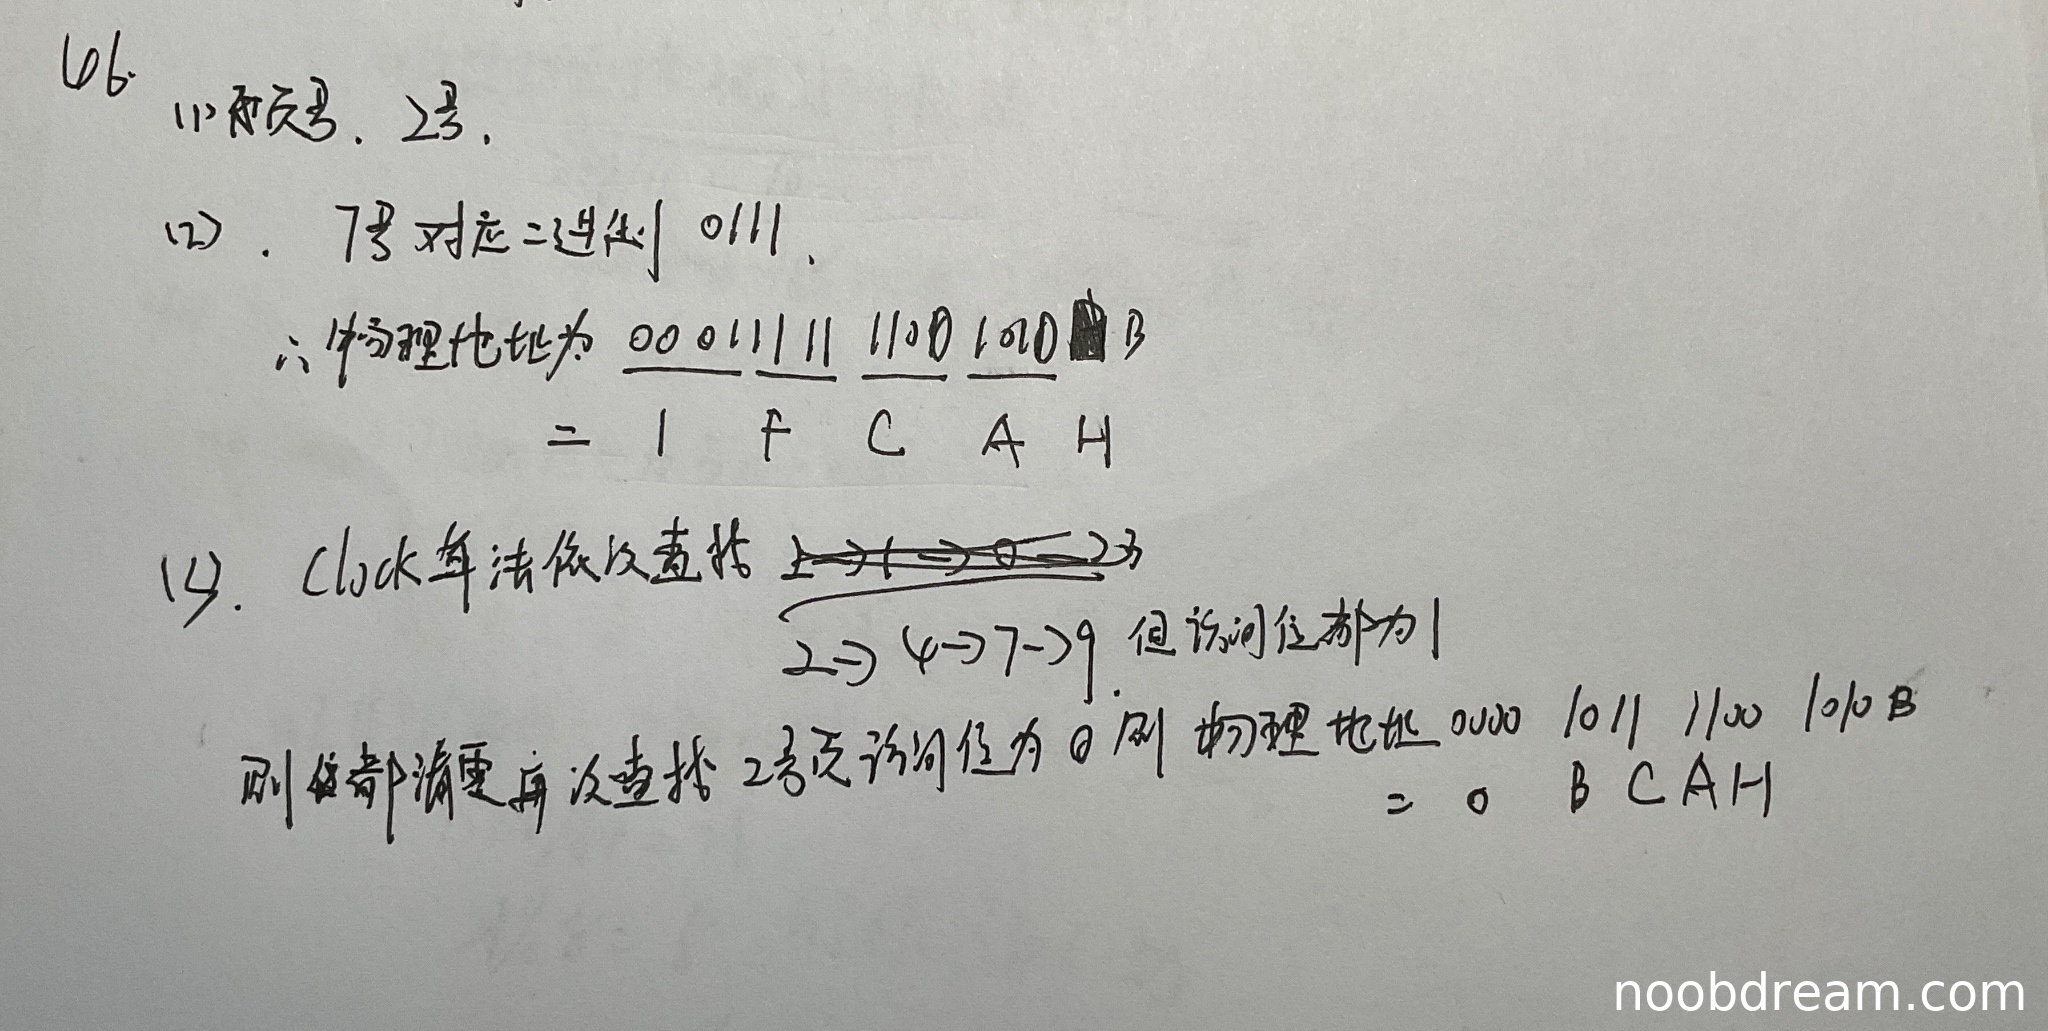 46.
(1) 所页号. 2号.
(2). 7号对应二进制 0111.
∴物理地址为 0001 1111 1100 1010 B
= 1 F C A H
Clock算法依次查找
2→4→7→9. 但访问位都为1
则都清零再次查找 2号页访问位为0 则 物理地址 0000 1011 1100 1010 B
= 0 B C A H
noobdream.com